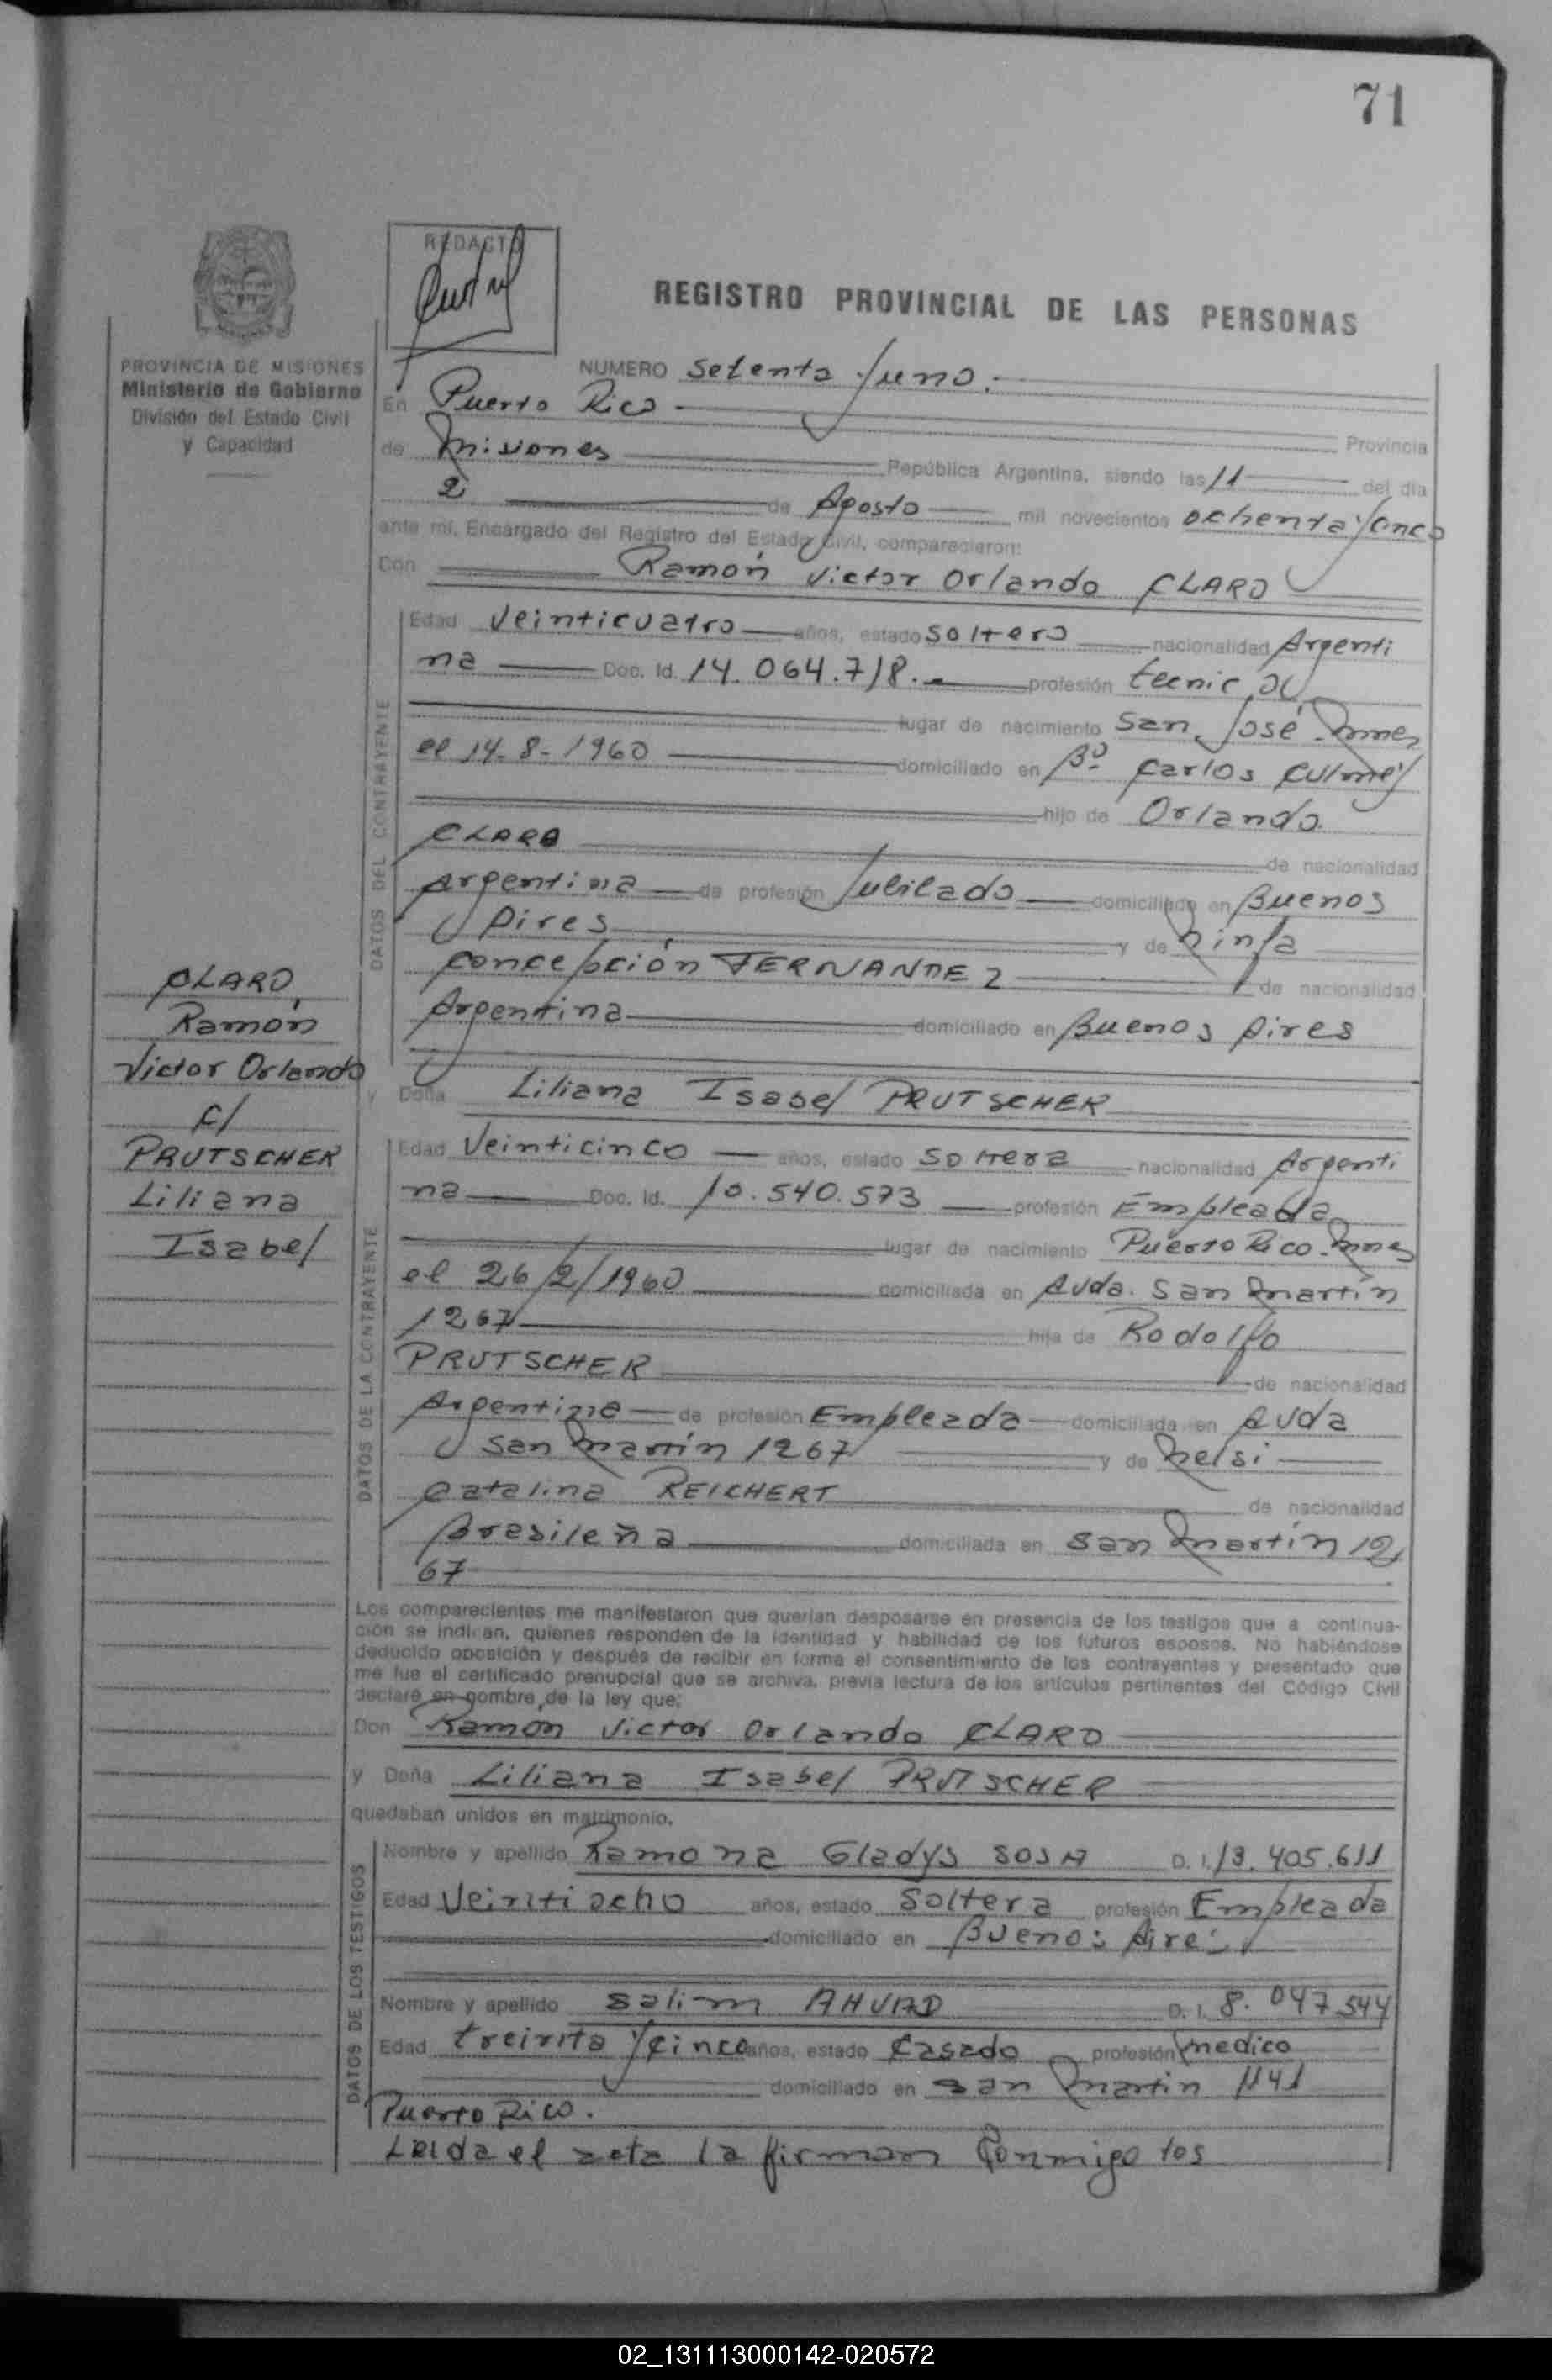 71
REDACTO
REGISTRO PROVINCIAL DE LAS PERSONAS
PROVINCIA DE MISIONES
Ministerio de Gobierno
División del Estado Civil
y Capacidad
NUMERO Setenta y uno.
En Puerto Rico Provincia
de Misiones República Argentina, siendo las 11 del día
2 de Agosto mil novecientos ochenta y cinco
ante mí, Encargado del Registro del Estado Civil, comparecieron:
Don Ramón Victor Orlando CLARO
DATOS DEL CONTRAYENTE
Edad Veinticuatro años, estado Soltero nacionalidad Argenti
na Doc. Id. 14.064.718. profesión tecnico
lugar de nacimiento San José Mnes
el 14-8-1960 domiciliado en Bº Carlos Culmey
hijo de Orlando
CLARO de nacionalidad
Argentina de profesión Jubilado domiciliado en Buenos
Aires y de Ninfa
Concepción FERNANDEZ de nacionalidad
Argentina domiciliado en Buenos Aires
CLARO
Ramón
Victor Orlando
c/
PRUTSCHER
Liliana
Isabel
y Doña Liliana Isabel PRUTSCHER
DATOS DE LA CONTRAYENTE
Edad Veinticinco años, estado Soltera nacionalidad Argenti
na Doc. Id. 10.540.573 profesión Empleada
lugar de nacimiento Puerto Rico. Mnes
el 26/2/1960 domiciliada en Avda. San Martín
1267 hija de Rodolfo
PRUTSCHER de nacionalidad
Argentina de profesión Empleada domiciliada en Avda
San Martín 1267 y de Nelsi
Catalina REICHERT de nacionalidad
Brasileña domiciliada en San Martín 12
67
Los comparecientes me manifestaron que querían desposarse en presencia de los testigos que a continua-
ción se indican, quienes responden de la identidad y habilidad de los futuros esposos. No habiéndose
deducido oposición y después de recibir en forma el consentimiento de los contrayentes y presentado que
me fue el certificado prenupcial que se archiva, previa lectura de los artículos pertinentes del Código Civil
declaré en nombre de la ley que;
Don Ramón Victor Orlando CLARO
y Doña Liliana Isabel PRUTSCHER
quedaban unidos en matrimonio.
DATOS DE LOS TESTIGOS
Nombre y apellido Ramona Gladys SOSA D. I. 13.405.611
Edad Veintiocho años, estado Soltera profesión Empleada
domiciliado en Buenos Aires
Nombre y apellido Salim AHUAD D. I. 8.047.544
Edad treinta y cinco años, estado Casado profesión medico
domiciliado en San Martin 1141
Puerto Rico.
Leida el acta la firman Conmigo los
02_131113000142-020572